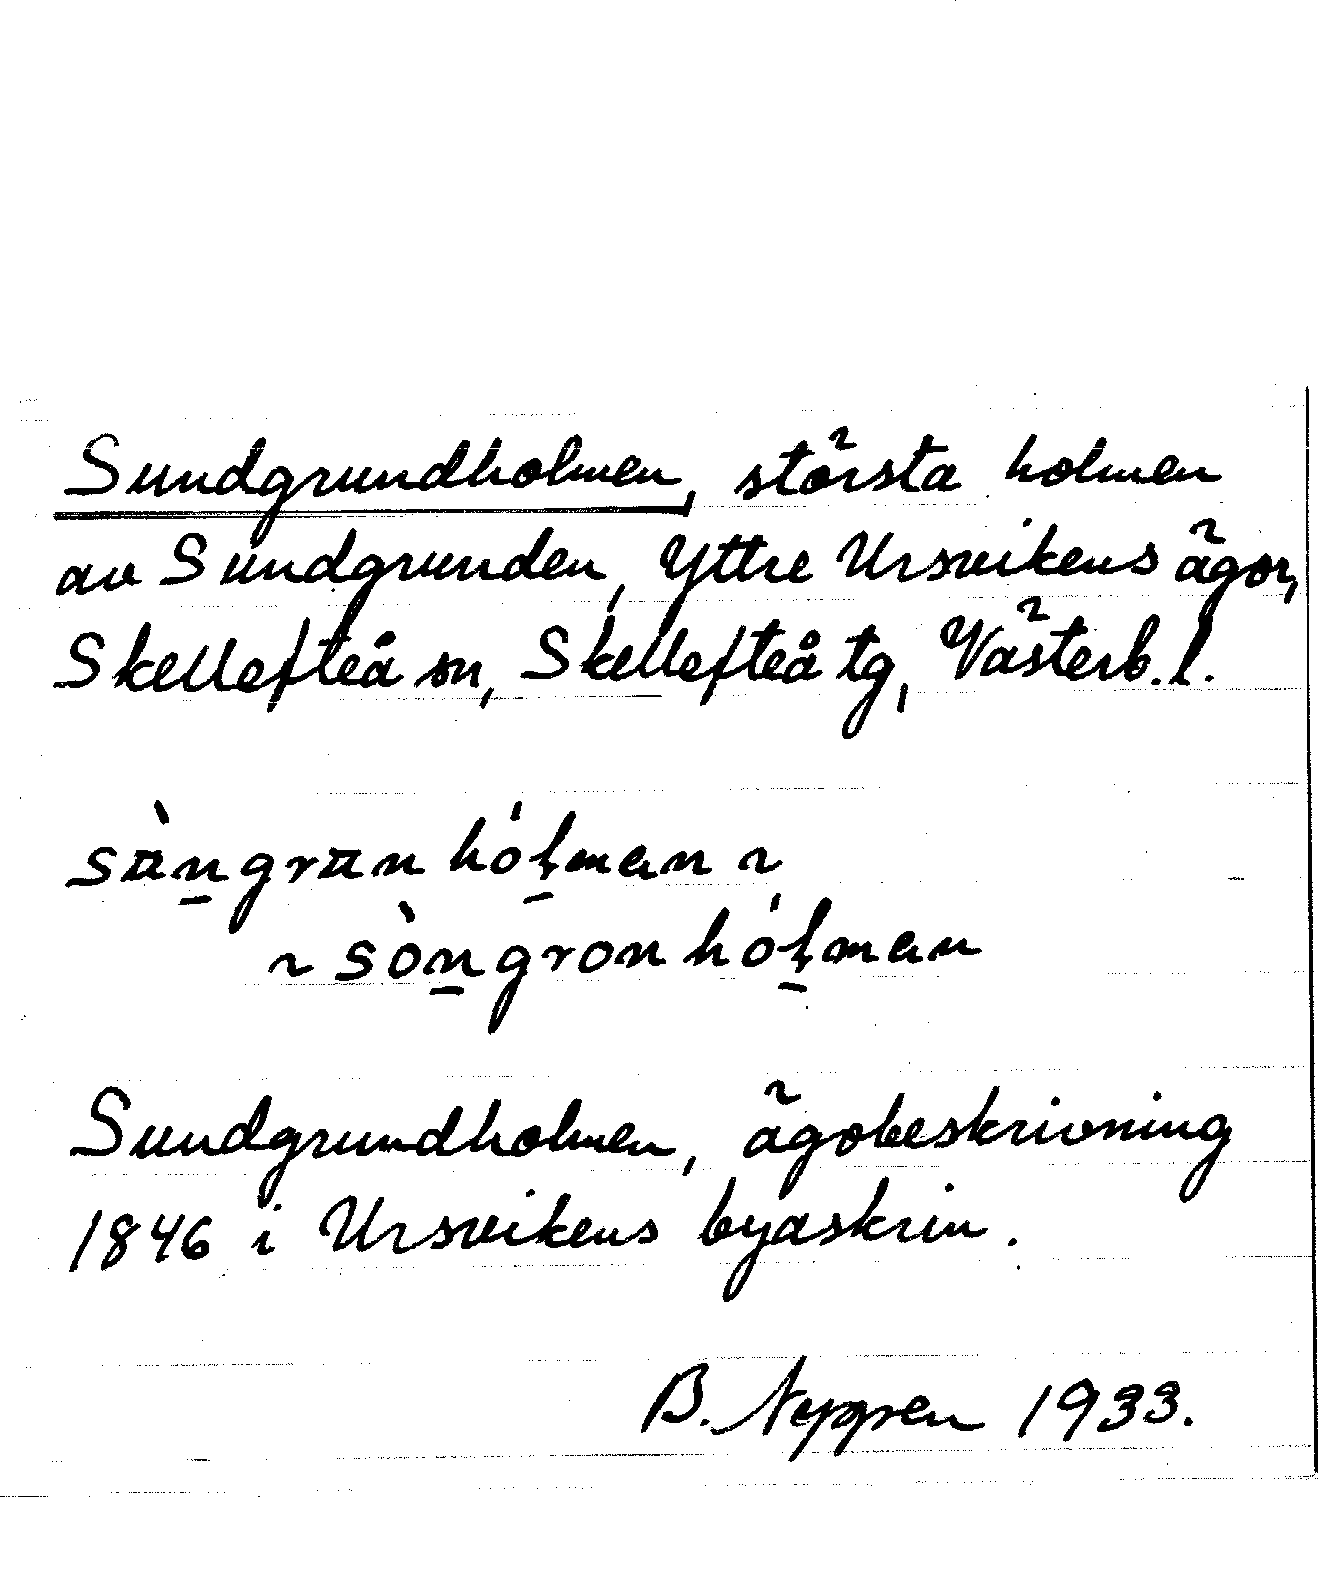 Sundgrundholmen, största holmen
av Sundgrunden, Yttre Ursvikens ägor,
Skellefteå sn, Skellefteå tg, Västerb. l.
sɤ̀n̲grɤnhól̲man ~
~ sòn̲gronhól̲man
Sundgrundholmen, ägobeskrivning
1846 i Ursvikens byaskrin.
B. Nygren 1933.